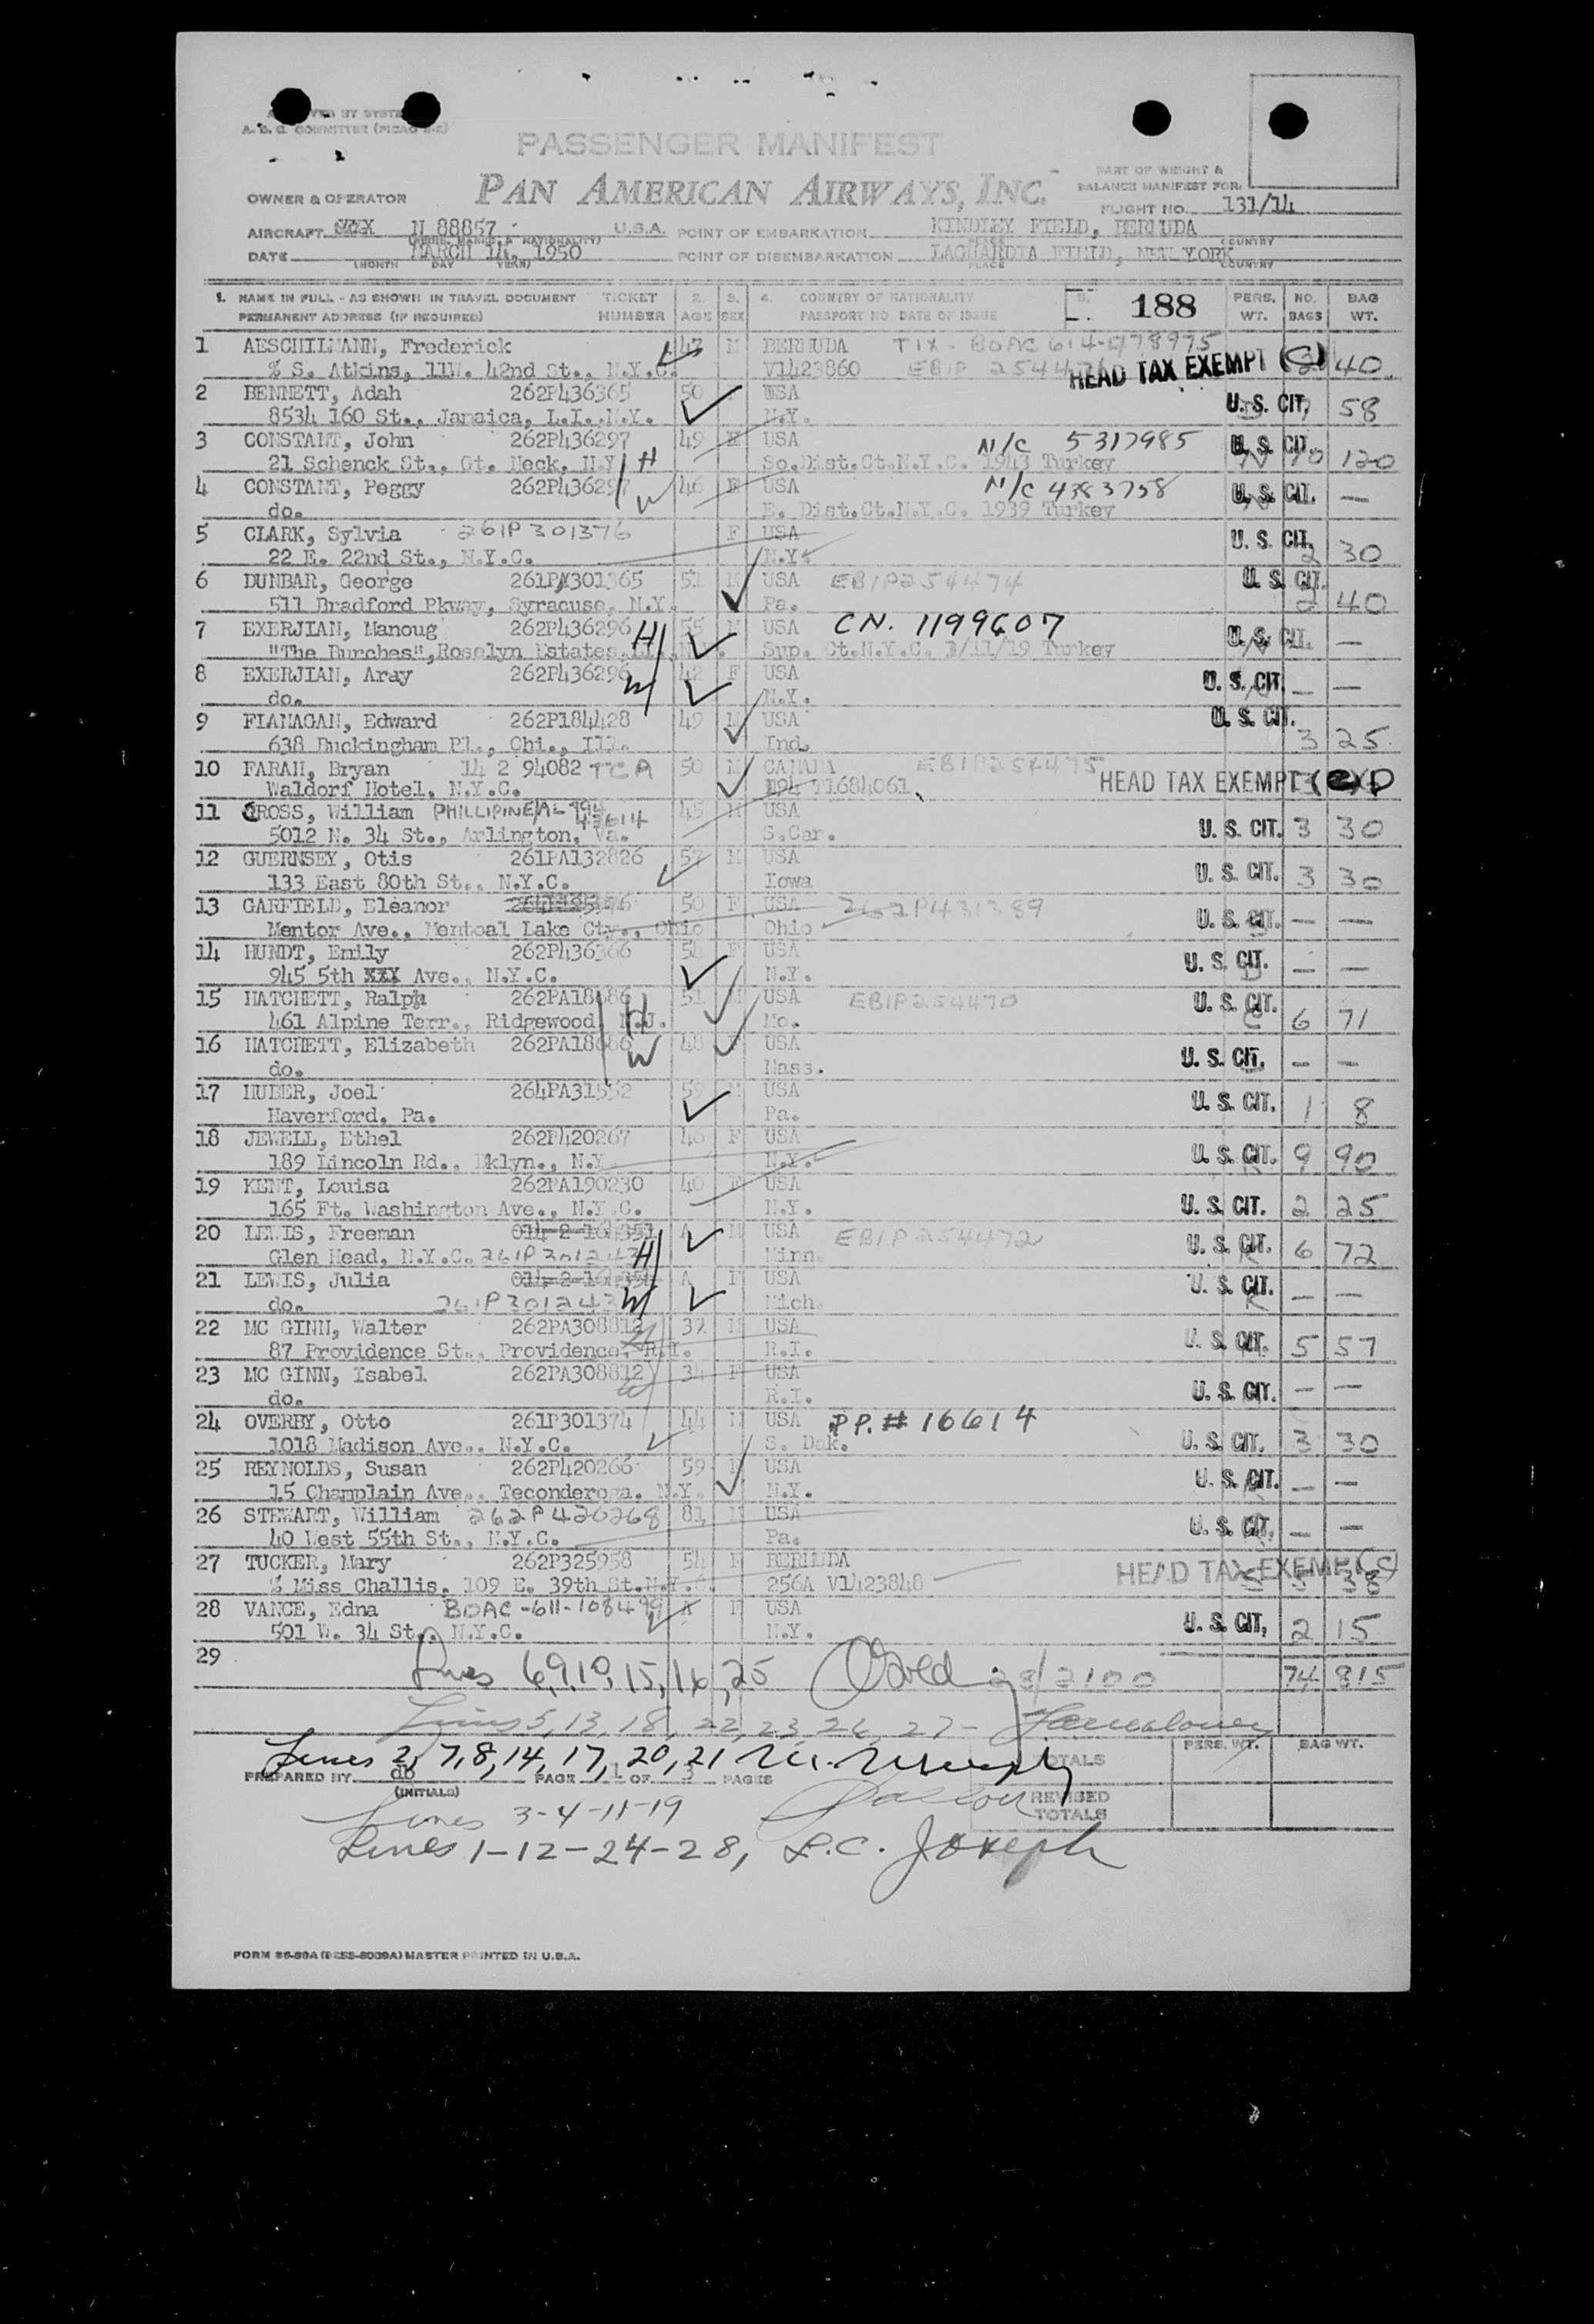 A. D. C. COMMITTEE
PASSENGER MANIFEST
PART OF WEIGHT &
PAN AMERICAN AIRWAYS, INC.
BALANCE MANIFEST FOR:
OWNER & OPERATOR
FLIGHT NO. 131/14
AIRCRAFT N 88857 U.S.A. POINT OF EMBARKATION KINDLEY FIELD, BERMUDA
COUNTRY
DATE MARCH 14, 1950 POINT OF DISEMBARKATION LAGUARDIA FIELD, NEW YORK
(MONTH DAY YEAR) PLACE COUNTRY
1. NAME IN FULL - AS SHOWN IN TRAVEL DOCUMENT TICKET 2. 3. 4. COUNTRY OF NATIONALITY 5. 188 PERS. NO. BAG
PERMANENT ADDRESS (IF REQUIRED) NUMBER AGE SEX PASSPORT NO. DATE OF ISSUE WT. BAGS WT.
1 AESCHILMANN, Frederick 47 M BERMUDA TIX- BOAC 614-
% S. Atkins, 11W. 42nd St., N.Y.C. V1423860 EBIP HEAD TAX EXEMPT (C) 40
2 BENNETT, Adah 262P436365 50 USA
8534 160 St., Jamaica, L.I. N.Y. N.Y. U. S. CIT. 58
3 CONSTANT, John 262P436297 49 M USA N/C 5317985 U. S. CIT.
21 Schenck St., Gt. Neck, N.Y. H So.Dist.Ct.N.Y.C. 1943 Turkey 10 120
4 CONSTANT, Peggy 262P436297 46 F USA N/C 4383758 U. S. CIT. —
do. W E. Dist.Ct.N.Y.C. 1939 Turkey
5 CLARK, Sylvia 261P301376 F USA U. S. CIT.
22 E. 22nd St., N.Y.C. N.Y. 2 30
6 DUNBAR, George 261PA301365 51 M USA EBIP254474 U. S. CIT.
511 Bradford Pkway, Syracuse, N.Y. Pa. 2 40
7 EXERJIAN, Manoug 262P436296 H 55 M USA CN. 1199607 U. S. CIT. —
"The Burches", Roselyn Estates, Sup. Ct.N.Y.C. /11/19 Turkey
8 EXERJIAN, Aray 262P436296 W 42 F USA U. S. CIT. — —
do. N.Y.
9 FLANAGAN, Edward 262P184428 49 M USA U. S. CIT.
638 Buckingham Pl., Chi., Ill. Ind. 3 25
10 FARAH, Bryan 14 2 94082 TCA 50 M CANADA EBIP254475
Waldorf Hotel, N.Y.C. T1684061 HEAD TAX EXEMPT
11 GROSS, William PHILLIPINE/AL 45 M USA
5012 N. 34 St., Arlington, Va. S.Car. U. S. CIT. 3 30
12 GUERNSEY, Otis 261PA132826 57 M USA
133 East 80th St., N.Y.C. Iowa U. S. CIT. 3 30
13 GARFIELD, Eleanor 50 F USA 262P431389
Mentor Ave., Mentoal Lake Cty., Ohio Ohio U. S. CIT. — —
14 HUNDT, Emily 262P436366 F USA
945 5th XXX Ave., N.Y.C. N.Y. U. S. CIT. — —
15 HATCHETT, Ralph 262PA18686 51 M USA EBIP254470 U. S. CIT.
461 Alpine Terr., Ridgewood, N.J. H Mo. 6 71
16 HATCHETT, Elizabeth 262PA18686 W 48 F USA
do. Mass. U. S. CIT. — —
17 HUBER, Joel 264PA31552 59 M USA
Haverford, Pa. Pa. U. S. CIT. 1 8
18 JEWELL, Ethel 262P420267 46 F USA
189 Lincoln Rd., Bklyn., N.Y. N.Y. U. S. CIT. 9 90
19 KENT, Louisa 262PA190230 40 F USA
165 Ft. Washington Ave., N.Y.C. N.Y. U. S. CIT. 2 25
20 LEWIS, Freeman A M USA EBIP254472
Glen Head, N.Y.C. 261P301243 H Minn. U. S. CIT. 6 72
21 LEWIS, Julia A F USA
do. 261P301243 W Mich. U. S. CIT. — —
22 MC GINN, Walter 262PA308812 37 M USA
87 Providence St., Providence, R.I. R.I. U. S. CIT. 5 57
23 MC GINN, Isabel 262PA308812 34 F USA
do. R.I. U. S. CIT. — —
24 OVERBY, Otto 261P301374 44 M USA P.P. # 16614
1018 Madison Ave., N.Y.C. S. Dak. U. S. CIT. 3 30
25 REYNOLDS, Susan 262P420266 59 F USA
15 Champlain Ave., Teconderoga, N.Y. N.Y. U. S. CIT. — —
26 STEWART, William 262P420268 81 M USA
40 West 55th St., N.Y.C. Pa. U. S. CIT. — —
27 TUCKER, Mary 262P325958 54 F BERMUDA
% Miss Challis, 109 E. 39th St. N.Y.C. 256A V1423848 HEAD TAX EXEMPT 38
28 VANCE, Edna BOAC-611-108499 A F USA
501 W. 34 St., N.Y.C. N.Y. U. S. CIT. 2 15
29
Lines 6,9,10,15,16,25 28/2100 74 815
Lines 5, 13, 18, 22, 23, 26, 27 -
Lines 2, 7, 8, 14, 17, 20, 21
TOTALS PERS. WT. BAG WT.
PREPARED BY db PAGE 1 OF 3 PAGES
(INITIALS)
REVISED
TOTALS
Lines 3-4-11-19
Lines 1-12-24-28, L.C. Joseph
MASTER PRINTED IN U.S.A.